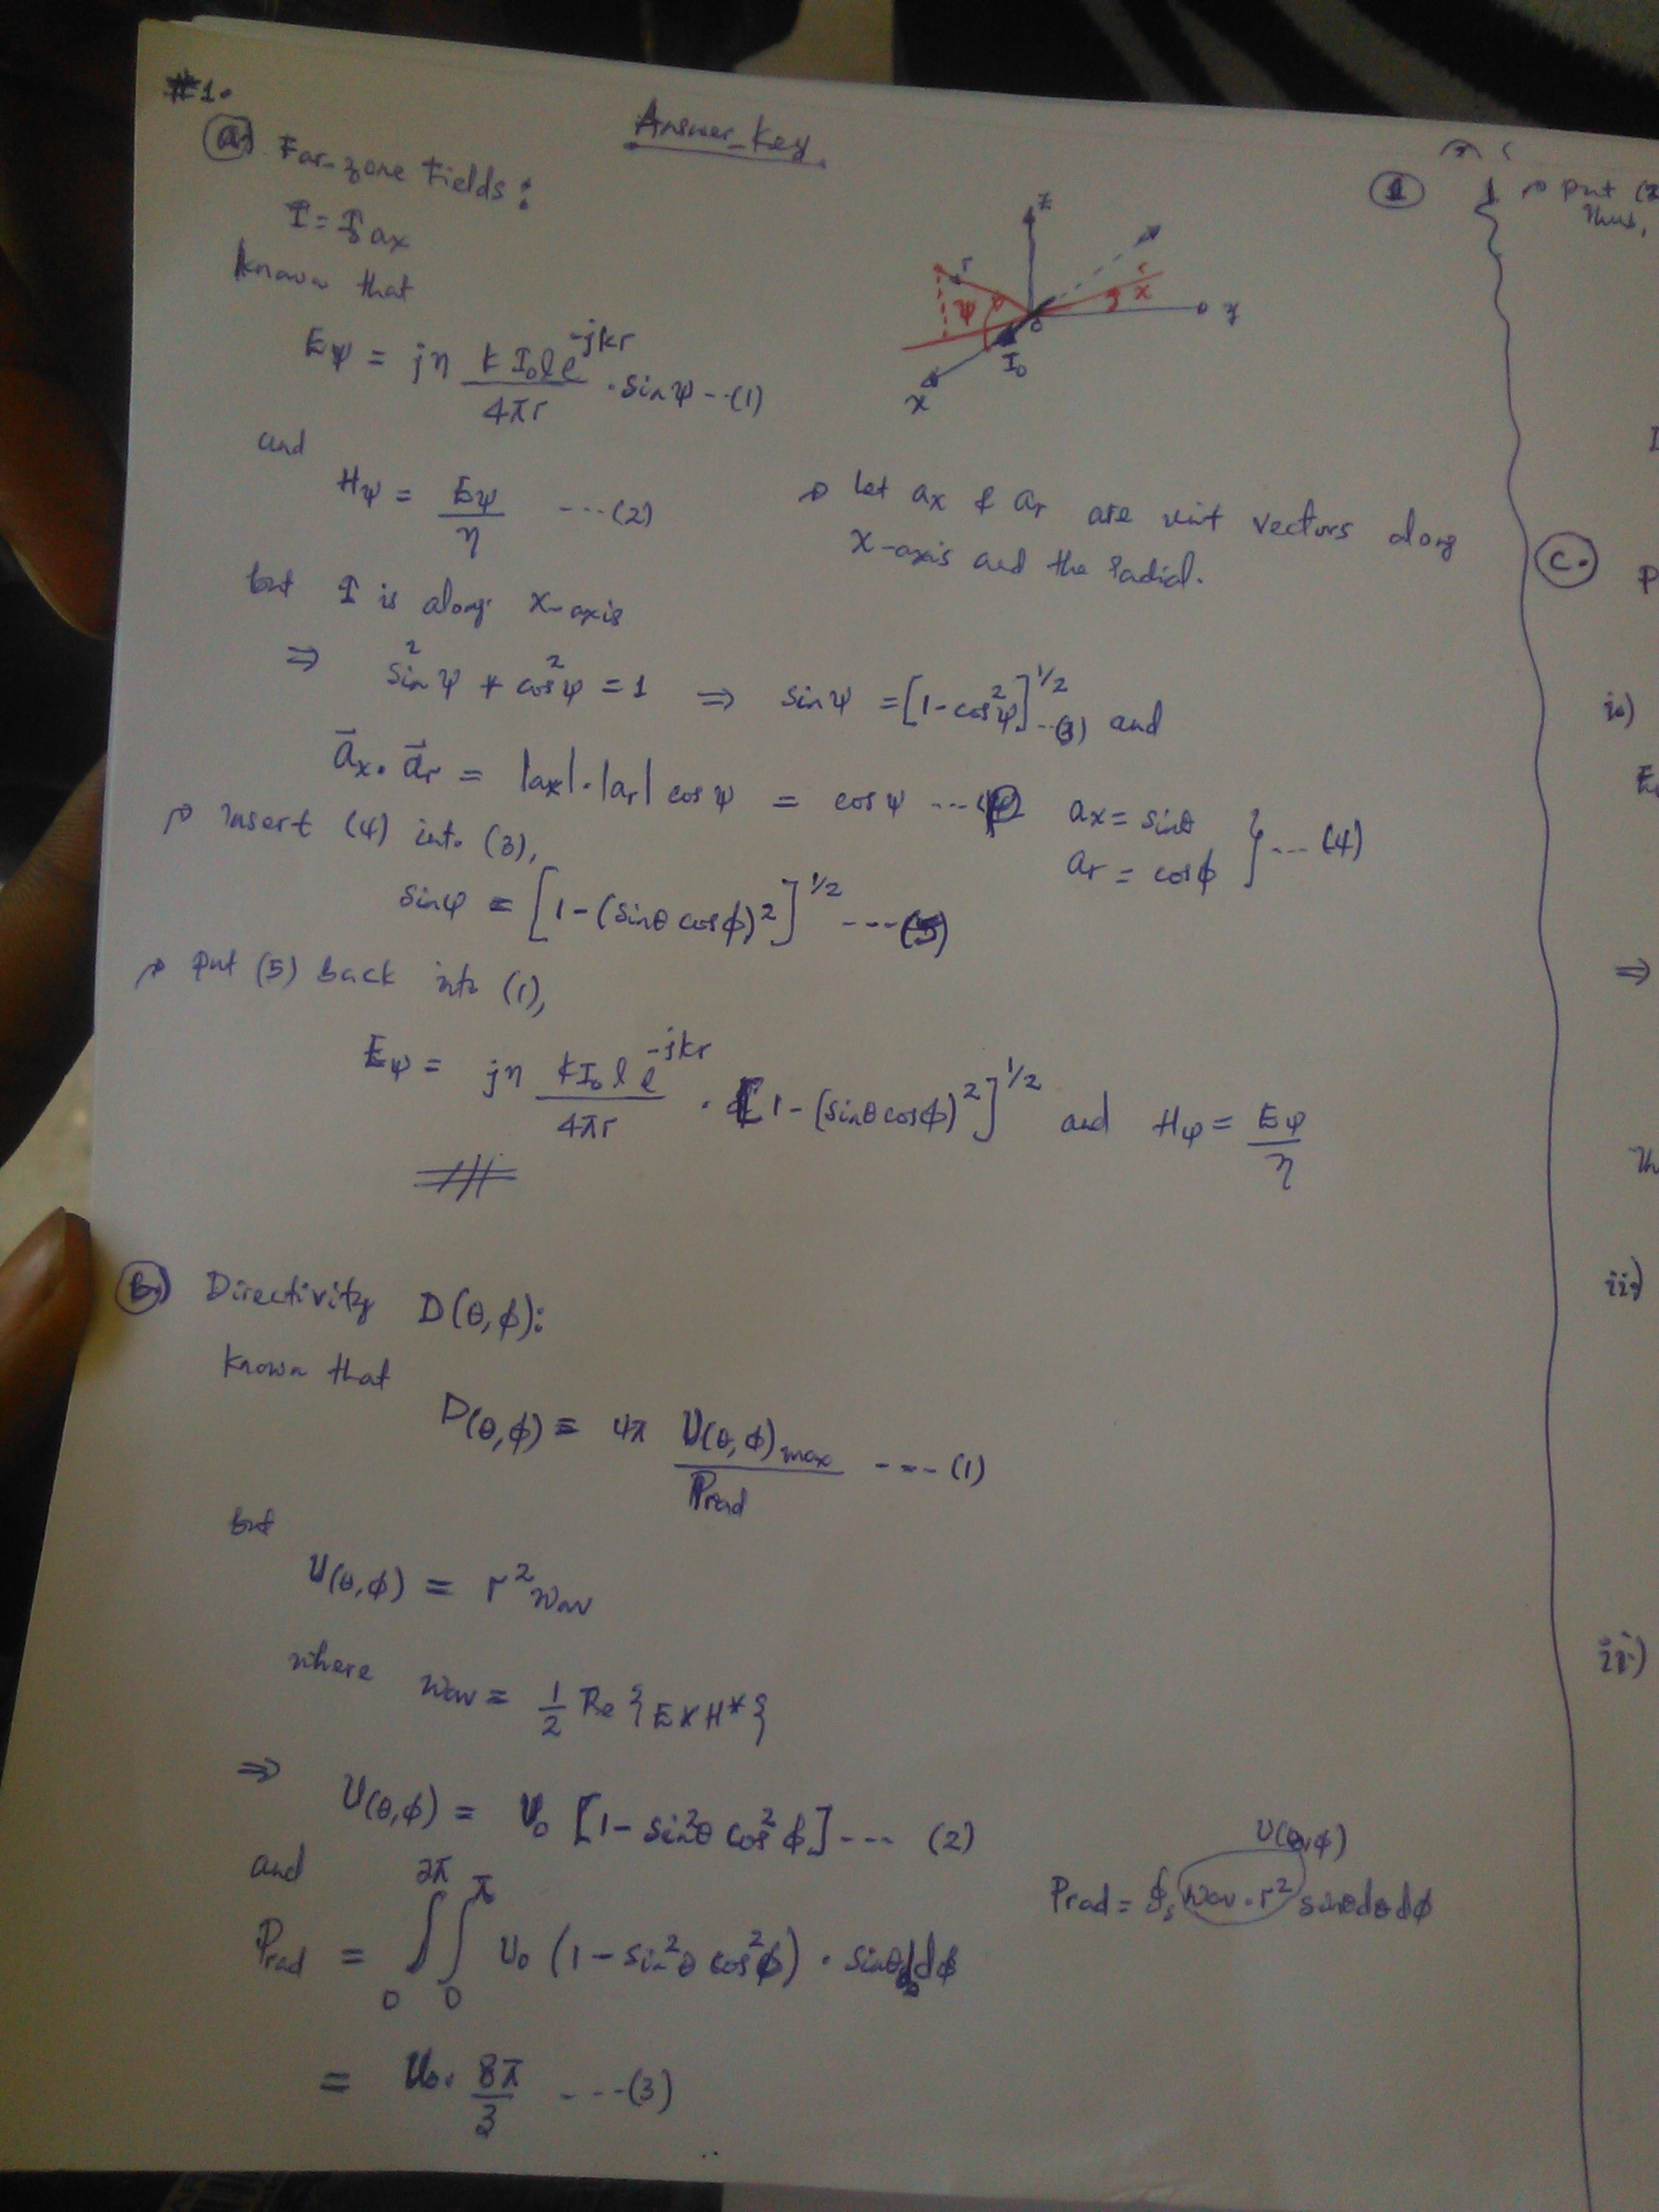 #1.
Answer-Key.
a) Far-zone Fields:
I = I₀ ax
known that
Eψ = jη k I₀ l e^-jkr / 4πr · sin ψ --(1)
and
Hψ = Eψ / η ---(2)
but I is along x-axis
z
r
ψ
x
y
0
I₀
x
→ Let ax & ar are unit vectors along
x-axis and the radial.
⇒ sin²ψ + cos²ψ = 1 ⇒ sin ψ = [1-cos²ψ]^1/2 --(3) and
a⃗x . a⃗r = |ax|.|ar| cos ψ = cos ψ ---
ax = sinθ
ar = cos ϕ } --- (4)
→ Insert (4) into (3),
sin φ = [1-(sinθ cos ϕ)²]^1/2 ---(5)
→ Put (5) back into (1),
Eψ = jη k I₀ l e^-jkr / 4πr . [1-(sinθ cosϕ)²]^1/2 and Hφ = Eφ / η
B.) Directivity D(θ,ϕ):
known that
D(θ,ϕ) = 4π U(θ,ϕ)max / Prad ---- (1)
but
U(θ,ϕ) = r² wav
where wav = 1/2 Re {E x H*}
⇒ U(θ,ϕ) = U₀ [1- sin²θ cos²ϕ] --- (2)
and
Prad = ∫₀^2π ∫₀^π U₀ (1- sin²θ cos²ϕ) . sinθ dθ dϕ
U(θ,ϕ)
Prad = ∮s wav . r² sinθdθdϕ
= U₀. 8π/3 ---(3)
1
→ Put
Thus,
C.
i.)
⇒
ii)
iii)